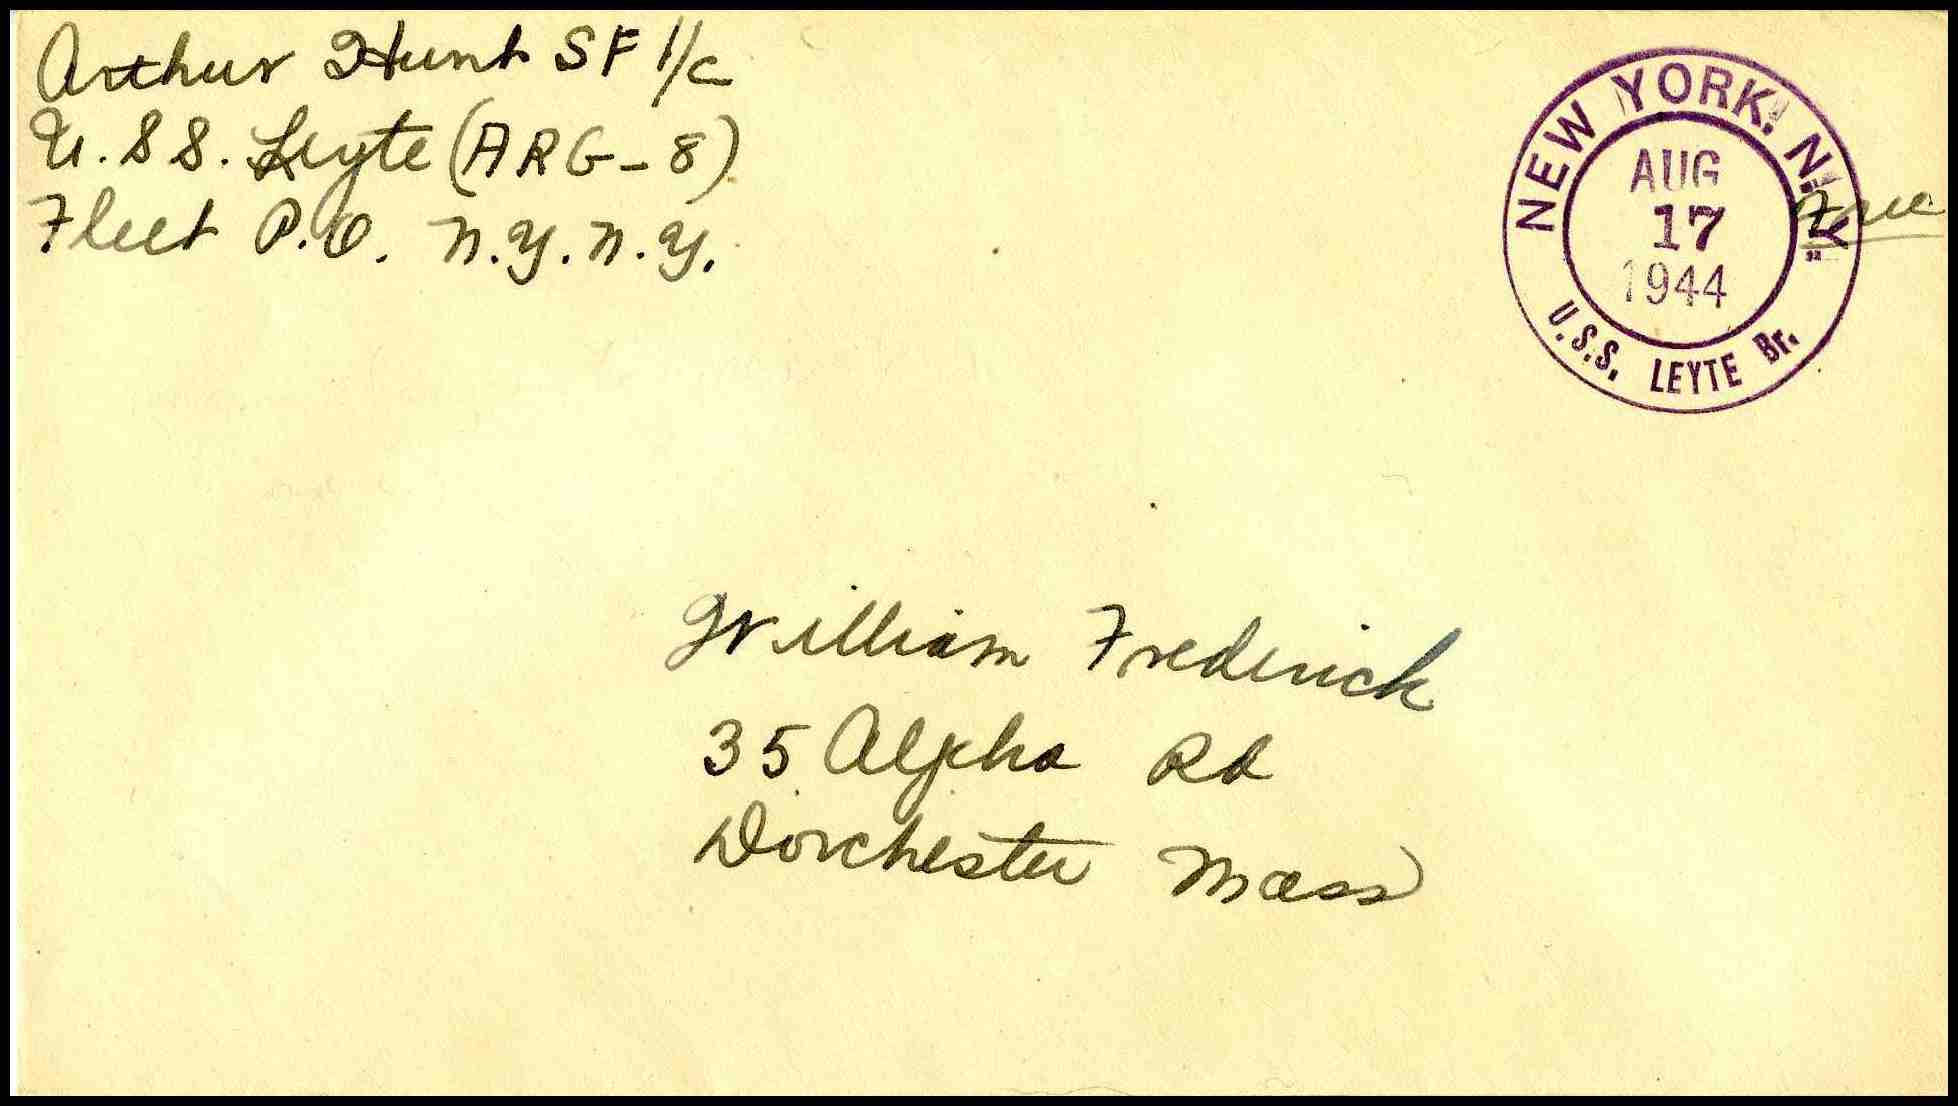 Arthur Hunt SF 1/c
U.SS. Leyte (ARG-8)
Fleet P.O. N.Y. N.Y.
NEW YORK, N.Y.
AUG
17
1944
U.S.S. LEYTE Br.
Free
William Frederick
35 Alpha Rd
Dorchester Mass